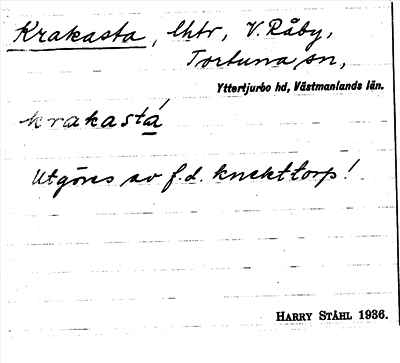 Krakasta, lhtr, V. Råby,
Tortuna sn,
Yttertjurbo hd, Västmanlands län.
krakastá
Utgöres av f.d. knekttorp!
HARRY STÅHL 1936.